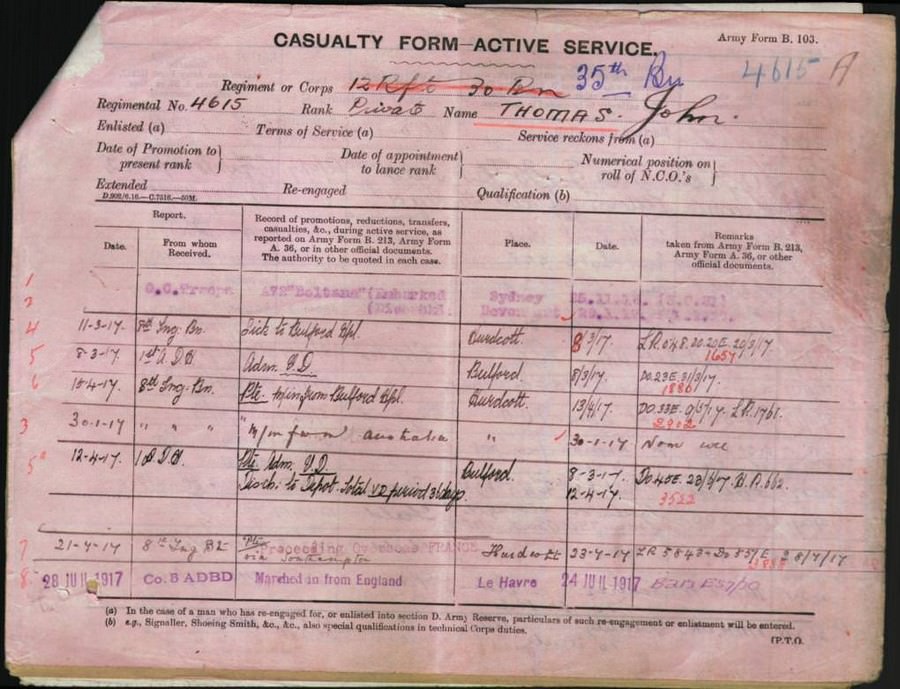 Army Form B. 103.
CASUALTY FORM—ACTIVE SERVICE.
4615 A
Regiment or Corps 12 Rft 30 Bn 35th Bn
Regimental No. 4615 Rank Private Name THOMAS. John.
Enlisted (a) Terms of Service (a) Service reckons from (a)
Date of Promotion to present rank } Date of appointment to lance rank } Numerical position on roll of N.C.O.'s }
Extended Re-engaged Qualification (b)
Report.
Date.
From whom Received.
Record of promotions, reductions, transfers, casualties, &c., during active service, as reported on Army Form B. 213, Army Form A. 36, or in other official documents. The authority to be quoted in each case.
Place.
Date.
Remarks taken from Army Form B. 213, Army Form A. 36, or other official documents.
1
2 O.C. Troops A72 "Beltana" (Embarked Sydney 25.11.16.
Devon
4 11-3-17. 8th Tng. Bn. Sick to Bulford Hpl. Durdcott. 8/3/17. 20/3/17.
1657
5 8-3-17. 1st A.D.H. Adm. V.D. Bulford. 8/3/17. DO.23E. 31/3/17.
1880
6 15-4-17. 8th Tng. Bn. Pte. M/in from Bulford Hpl. Durdcott. 13/4/17. DO.33E. 9/5/17. L.R. 1761.
2902
3 30-1-17 " " " M/in from Australia " 30-1-17 Nom
5a 12-4-17. 1 A.D.H. Pte. Adm. V.D. Bulford. 8-3-17. Do.45E. 23/6/17. 662.
Disch. to Depot. Total V.D period 36 days. 12-4-17. 3522
7 21-7-17 8th Tng Bt Pte. Proceeding Overseas FRANCE Hurdcott 23-7-17 LR 5843 Do 55/E 28/7/17
via Southampton
8. 28 JUL 1917 Co. B ADBD Marched in from England Le Havre 24 JUL 1917
(a) In the case of a man who has re-engaged for, or enlisted into section D. Army Reserve, particulars of such re-engagement or enlistment will be entered.
(b) e.g., Signaller, Shoeing Smith, &c., &c., also special qualifications in technical Corps duties.
[P.T.O.